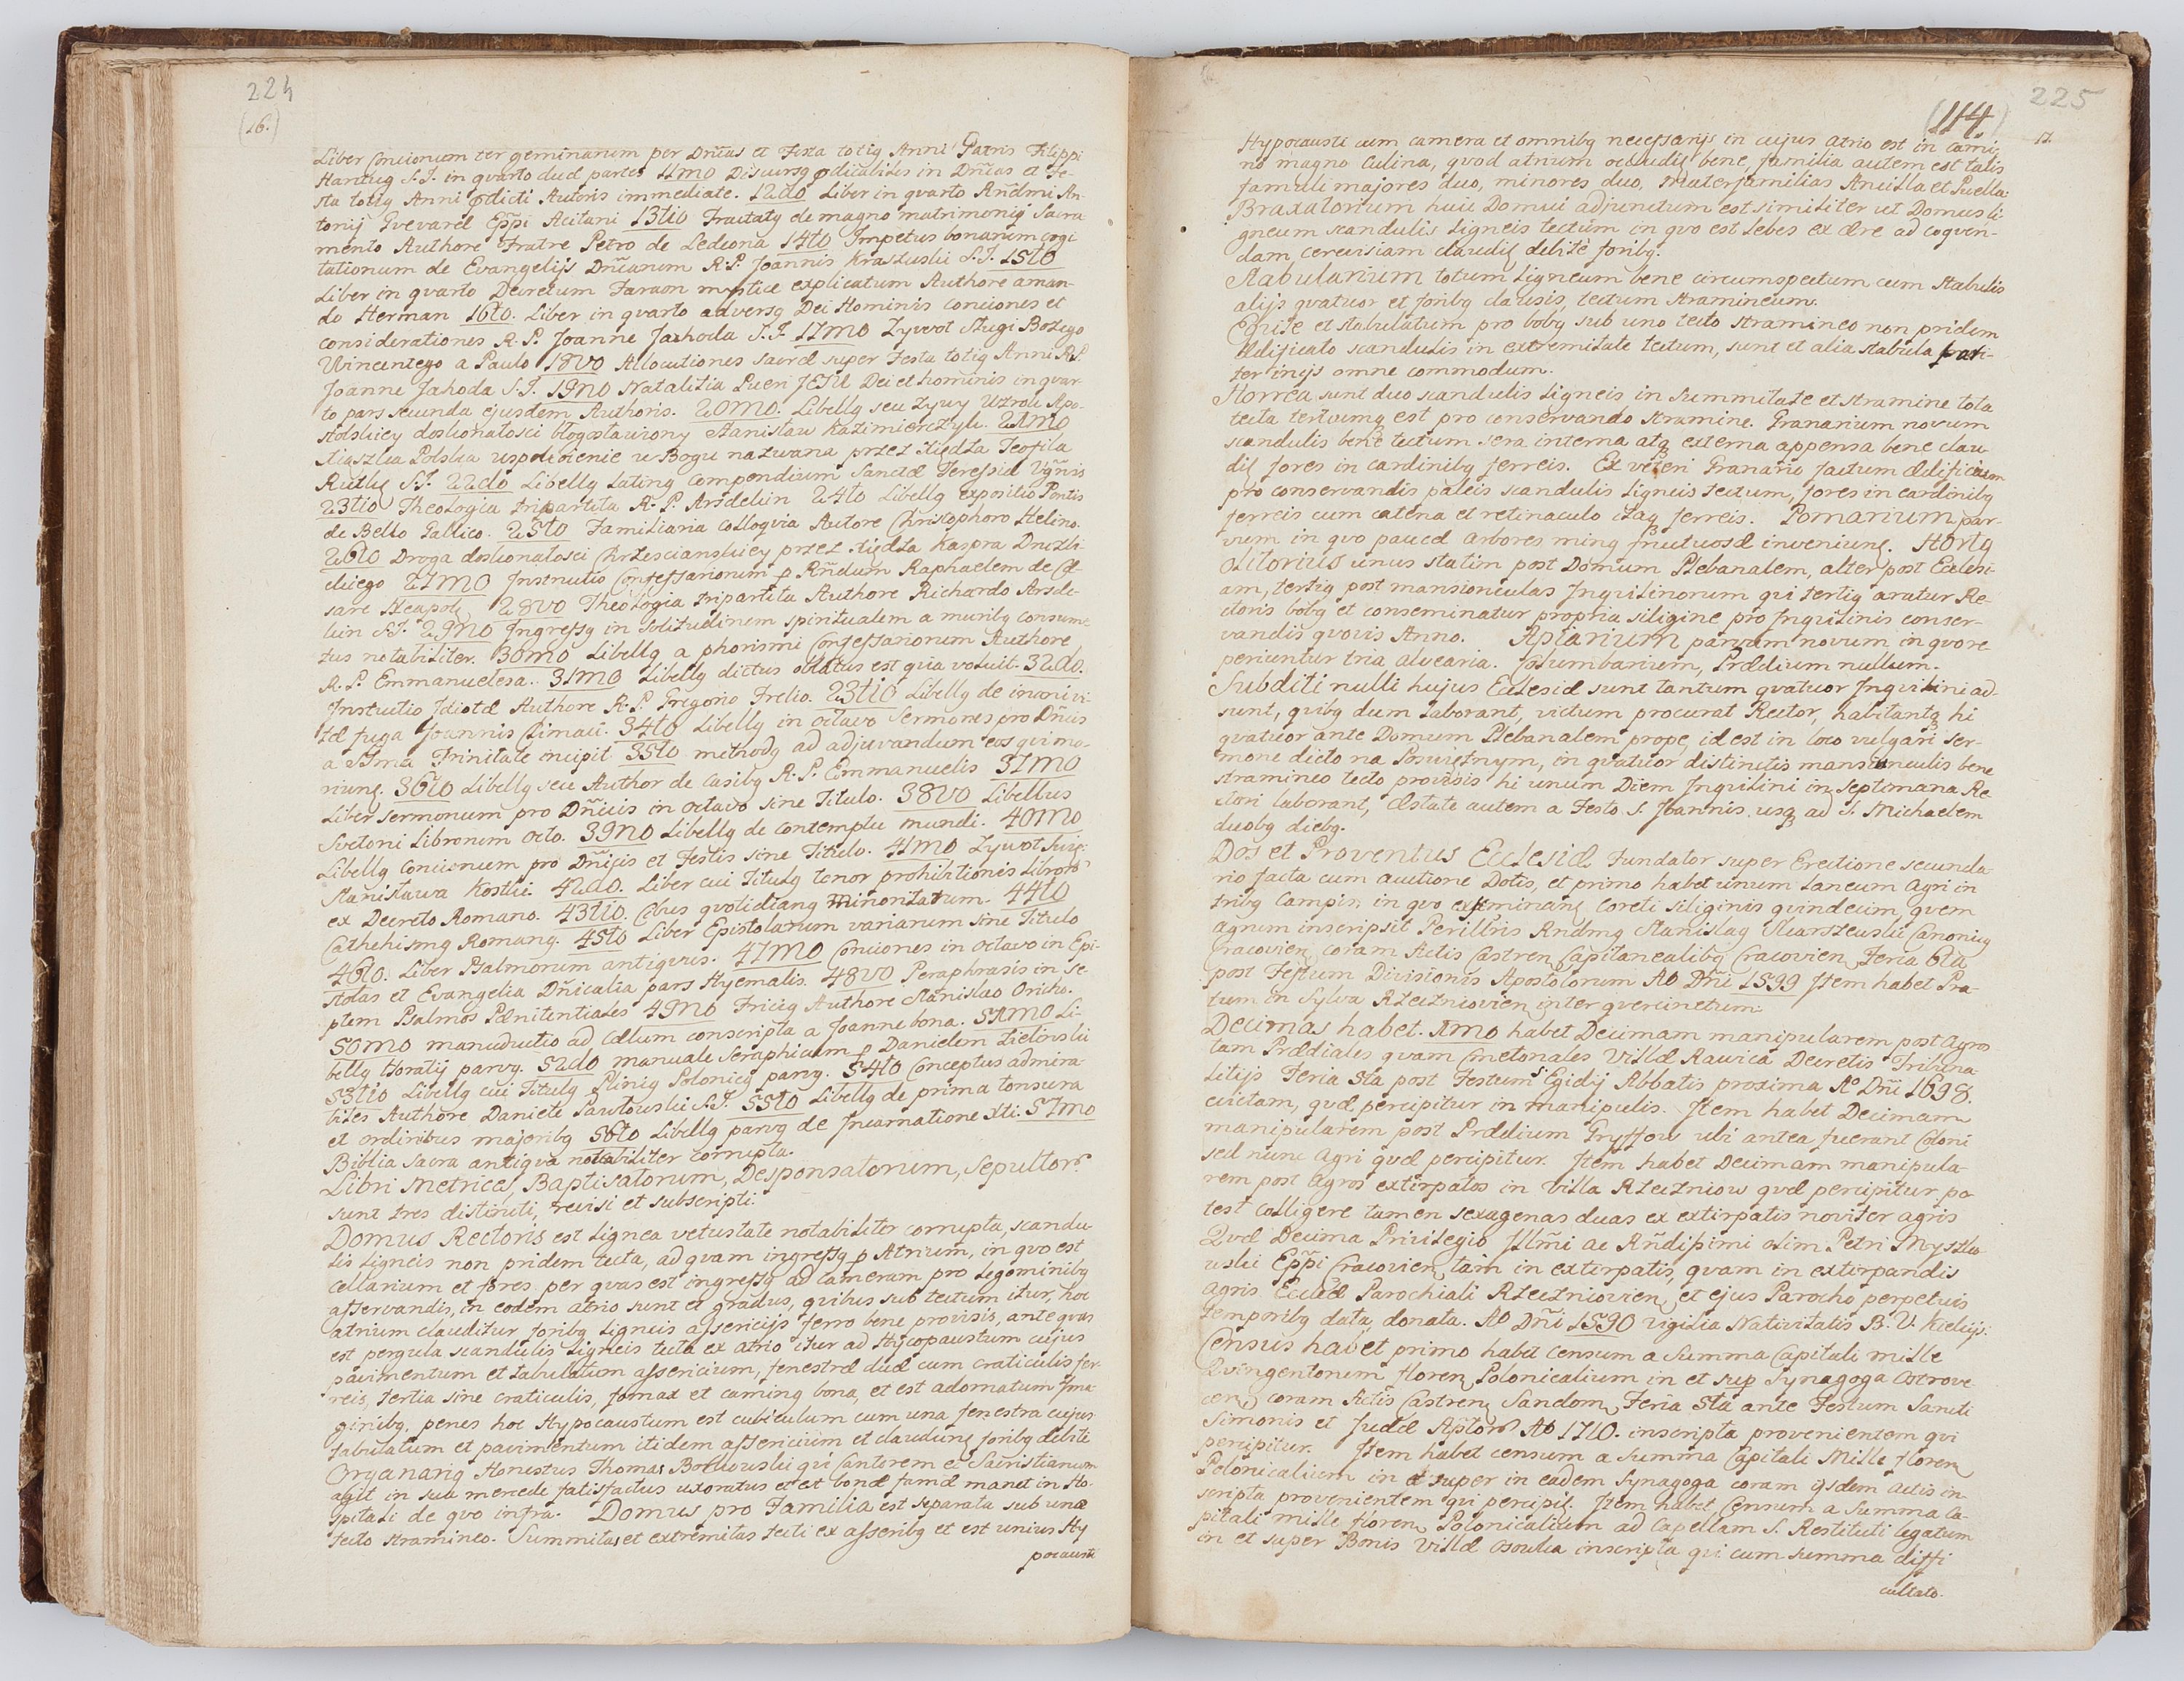 224
(16.)
Liber Concionum ter geminarum per Dñicas et Festa totiq Anni Patris Filippi
Hartug S.J. in quarto duæ partes 11mo Discursq pdicabiles in Dñicas et Fe-
sta totiq Anni pdicti Autoris immediate. 12do Liber in quarto Andmi An-
tonij Gvevaræ Eppi Acitani 13tio Tractatq de magno matrimonij Sacra
mento Authore Fratre Petro de Ledeona 14to Impetus bonarum cogi
tationum de Evangelijs Dñicarum R.P. Joannis Kraszuski S.J. 15to
Liber in quarto Decretum Faraon mystice explicatum Authore aman-
do Herman 16to. Liber in quarto adversq Dei Hominis conciones et
considerationes R.P. Joanne Jachoda S.J. 17mo Zywot Slugi Bozego
Wincentego a Paulo 18vo Allocutiones sacræ super Festa totiq Anni R.P.
Joanne Jahoda S.J. 19no Natalitia Pueri Jesu Dei et hominis in quar-
to pars secunda ejusdem Authoris. 20mo. Libellq seu zywy Wzrok Apo-
stolskiey doskonalosci błogosławiony Stanisław Kazimierczyk. 21mo
Xiąszka Polska uspokoienie w Bogu nazwana przez Xiędza Teofila
Rutkę S.J. 22do Libellq Latinq Compendium Sanctæ Teressiæ Vgñis
23tio Theologia tripartita R.P. Arsdekin 24to Libellq expositio Pontis
de Bello Gallico. 25to Familiaria colloqvia Autore Christophoro Helino.
26to Droga doskonałosci Chrzescianskiey przez Xiędza Kaspra Druzbi-
ckiego 27mo Instructio Confessariorum p Rñdum Raphaelem de Cæ
sare Neapoli, 28vo Theologia tripartita Authore Richardo Arsde-
kin S.J. 29no Ingressq in solitudinem spiritualem a muribq consum-
tus notabiliter. 30mo Libellq a phorismi Confessariorum Authore
R.P. Emmanuelesa. 31mo Libellq dictus oblatus est quia voluit. 32do.
Instructio Idiotæ Authore R.P. Gregorio Frelio. 23tio Libellq de
tæ fuga Joannis Climaci. 34to Libellq in octavo Sermones pro Dñicis
a SSma Trinitate incipit 35to methodq ad adjuvandum eos qvi mo-
riunt. 36to Libellq seu Author de casibq R.P. Emmanuelis 37mo
Liber sermonum pro Dñicis in octavo sine Titulo. 38vo Libellus
Svetoni Librorum octo. 39no Libellq de contemptu mundi. 40mo
Libellq concionum pro Dñicis et Festis sine Titulo. 41mo Zywot Swię:
Stanisława Kostki. 42do. Liber cui Titulq tenor prohibitionis Libror
ex Decreto Romano. 43tio. Cibus qvotidianq minoritarum. 44to
Cathehismq Romanq. 45to Liber Epistolarum variarum sine Titulo
46to. Liber Psalmorum antiqvus. 47mo Conciones in octavo in Epi-
stolas et Evangelia Dñicalia pars Hyemalis. 48vo Peraphrasis in se-
ptem Psalmos Pænitentiales 49no Fricig Authore Stanislao Oricho.
50mo manuductio ad Cælum conscripta a Joanne bona. 51mo Li-
bellq Horatij parvq. 52do manuale Seraphicum p Danielem Zielonski
53tio Libellq cui Titulq Plinig Polonicq parvq. 54to Conceptus admira-
biles Authore Daniele Pawłowski S.J. 55to Libellq de prima tonsura
et ordinibus majoribq 56to Libellq parvq de Incarnatione Xti. 57mo
Biblia Sacra antiqva notabiliter corrupta.
Libri Metrices, Baptisatorum, Desponsatorum, Sepultor
sunt tres distincti, revisi et subscripti.
Domus Rectoris est Lignea vetustate notabiliter corrupta, scandu-
lis ligneis non pridem tecta, ad quam ingressq p Atrium, in qvo est
cellarium et fores per quas est ingressq ad cameram pro legominibq
asservandis, in eodem atrio sunt et gradus, qvibus sub tectum itur, hoc
atrium clauditur foribq Ligneis assericijs ferro bene provisis, ante qvas
est pergula scandulis Ligneis tecta ex atrio itur ad Hycopaustum cujus
pavimentum et tabulatum assericium, fenestræ duæ cum craticulis fer-
reis, tertia sine craticulis, fornax et caminq bona, et est adornatum Ima-
ginibq, penes hoc Hypocaustum est cubiculum cum una fenestra cujus
tabulatum et pavimentum itidem assericium et claudunt foribq debite
Organarig Honestus Thomas Borkowski qvi Cantorem et Sacristianum
agit in sua mercede satisfactus uxoratus et est bonæ famæ manet in Ho-
spitali de qvo infra. Domus pro Familia est separata sub uno
tecto stramineo. Summitas et extremitas tecti ex asseribq et est unius Hy
pocausti
225
(114)
17.
Hypocausti cum camera et omnibq necessarijs in cujus atrio est in cami-
no magno culina, qvod atrium occludit bene, familia autem est talis
famuli majores duo, minores duo, Materfamilias Ancilla et Puella.
Braxatorium huic Domui adjunctum est similiter ut Domus li-
gneum scandulis Ligneis tectum in qvo est Lebes ex ære ad coqven-
dam cerevisiam claudit debitè foribq.
Stabularium totum Ligneum bene circumspectum cum Stabulis
alijs qvatuor et foribq clausis, tectum stramineum.
et stabulatum pro bobq sub uno tecto stramineo non pridem
Ædificato scandulis in extremitate tectum, sunt et alia stabula pari-
ter in ijs omne commodum.
Horrea sunt duo scandulis Ligneis in Summitate et stramine tota
tecta tertiumq est pro conservando stramine. Granarium novum
scandulis bene tectum sera interna atq externa appensa bene clau
dit fores in cardinibq ferreis. Ex veteri Granario factum ædificium
pro conservandis paleis scandulis Ligneis tectum, fores in cardinibq
ferreis cum catena et retinaculo itaq ferreis. Pomarium par-
vum in qvo paucæ arbores minq fructuosæ inveniunt. Hortq
olitorius unus statim post Domum Plebanalem, alter post Ecclesi-
am, tertiq post mansionculas Inqvilinorum qvi tertiq aratur Re-
ctoris bobq et conseminatur propria siligine pro Inqvilinis conser-
vandis qvovis Anno. Apiarium parvum novum in qvo re
periuntur tria alvearia. Plumbarium, Prædium nullum.
Subditi nulli hujus Ecclesiæ sunt tantum qvatuor Inqvilini ad-
sunt, qvibq dum laborant, victum procurat Rector, habitantq hi
qvatuor ante Domum Plebanalem prope, id est in loco vulgari ser-
mone dicto na Poswiętnym, in qvatuor distinctis mansiunculis bene
stramineo tecto provisis hi unum Diem Inqvilini in Septimana Re
ctori laborant, Æstate autem a Festo S. Joannis usq ad S. Michaelem
duobq diebq.
Dos et Proventus Ecclesiæ Fundator super Erectione secunda-
rio facta cum auctione Dotis, et primo habet unum Laneum Agri in
tribq Campis in qvo exseminant Coreti siliginis qvindecim, qvem
agrum inscripsit Perillris Rndmq Stanislaq Skarszewski Canonicq
Cracovien coram Actis Castren Capitanealibq Cracovien Feria 6ta
post Festum Divisionis Apostolorum Ao Dñi 1599 Item habet Pra-
tum in Sylva Rzeczniovien inter qvercinetum.
Decimas habet. 1mo habet Decimam manipularem post Agros
tam Prædiales quam Cmetonales Villæ Rawica Decretis Tribuna-
litijs Feria 5ta post Festum S. Egidij Abbatis proxima Ao Dñi 1698.
evictam, qvæ percipitur in manipulis. Item habet Decimam
manipularem post Prædium Gryffow ubi antea fuerant Coloni
sed nunc Agri qvæ percipitur. Item habet Decimam manipula-
rem post Agros extirpatos in Villa Rzeczniow qvæ percipitur po
test colligere tamen sexagenas duas ex extirpatis noviter agris
Qvæ Decima Privilegio Illmi ac Rñdissimi olim Petri Myszko-
wski Eppi Cracovien tam in extirpatis, qvam in extirpandis
agris Ecclæ Parochiali Rzeczniovien et ejus Parocho perpetuis
temporibq data, donata. Ao Dñi 1590 vigilia Nativitatis B.V. Kielcijs.
Census habet primo habet censum a Summa Capitali mille
Qvingentorum floren Polonicalium in et sup Synagoga Ostrove
cen coram Actis Castren Sandom Feria 5ta ante Festum Sancti
Simonis et Judæ Aplor Ao 1710. inscripta provenientem qvi
percipitur. Item habet censum a summa Capitali Mille floren
Polonicalium in et super in eadem Synagoga coram ijsdem Actis in-
scripta provenientem qvi percipit. Item habet Censum a Summa Ca-
pitali mille floren Polonicalium ad Capellam S. Restituti legatum
in et super Bonis Villæ Osowka inscripta qvi cum summa diffi
cultate.